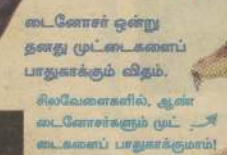 டைனோசர் ஒன்று
தனது முட்டைகளைப்
பாதுகாக்கும் விதம்.
சிலவேளைகளில், ஆண்
டைனோசர்களும் முட்
டைகளைப் பாதுகாக்குமாம்!